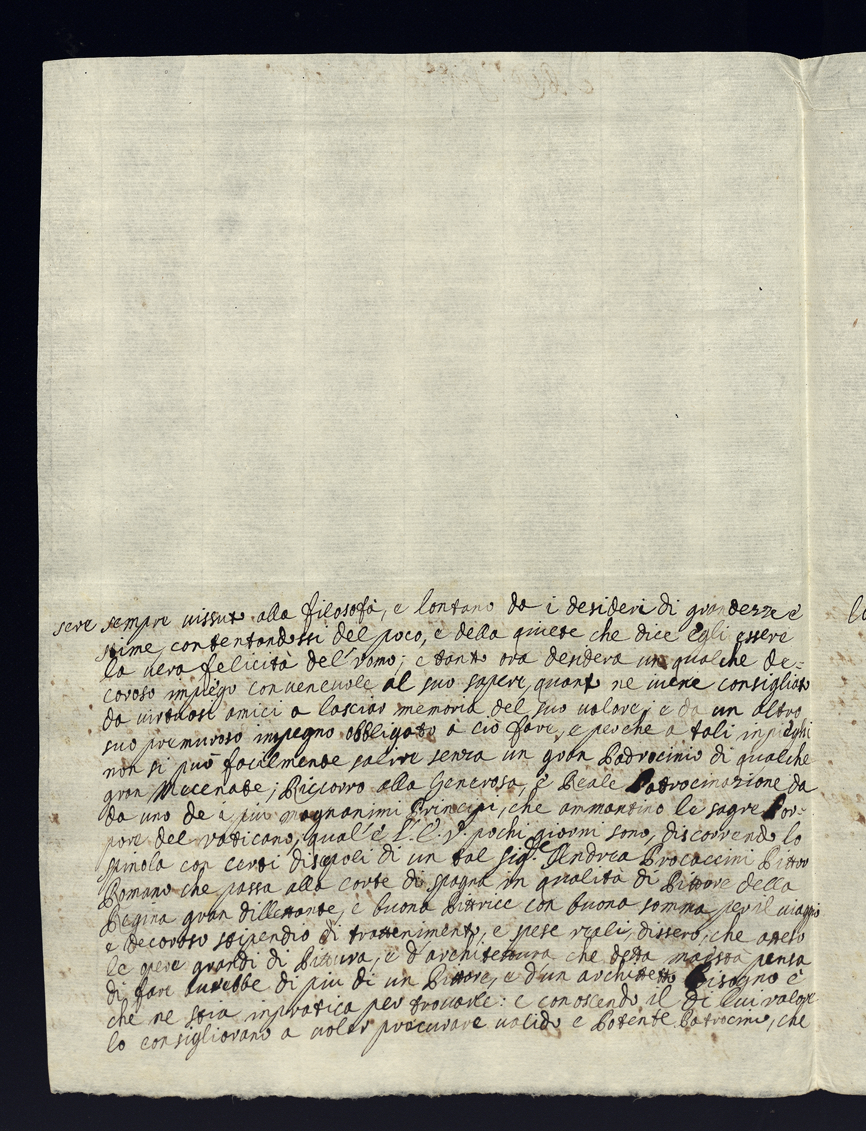 sere sempre uissuto alla filosofà, e lontano da i desideri di grandezze è
stime, contentandossi del poco, e della quiete che dice Egli essere
la uera felicità del' vomo; e tanto ora desidera un qualche de=
coroso impiego conueneuole al suo sapere, quanto ne uiene consigliato
da virtuosi amici a lasciar memoria del suo ualore; e da un altro
suo premuroso impegno obbligato à ciò fare, e perche a tali impieghi
non si può facilmente salire senza un gran Padrocinio di qualche
gran Mecenate; Riccorro alla Generosa, è Reale Patrocinazione da
da uno de i più magnanimi Principi, che ammantino le sagre Por-
pore del vaticano, qual' è pochi giorni sono, discorrendo lo
spinola con certi discipoli di un tal Sig.re Andrea Procaccini Pittor
Romano che passa alla corte di spagna in qualità di Pittore della
Regina gran dillettante, e buona Pittrice con buona somma per il uiaggio
e decoroso stipendio di trattenimento, e spese reali; dissero, che atteso
le opere grandi di Pittura, e d'architettura che detta maestà pensa
di fare aurebbe di più di un Pittore, e d'un architetto Bisogno è
che ne stia in pratica per trouarle: e conoscendo il di lui valore
lo consigliorano a uoler procurare ualido e Potente Patrocinio, che